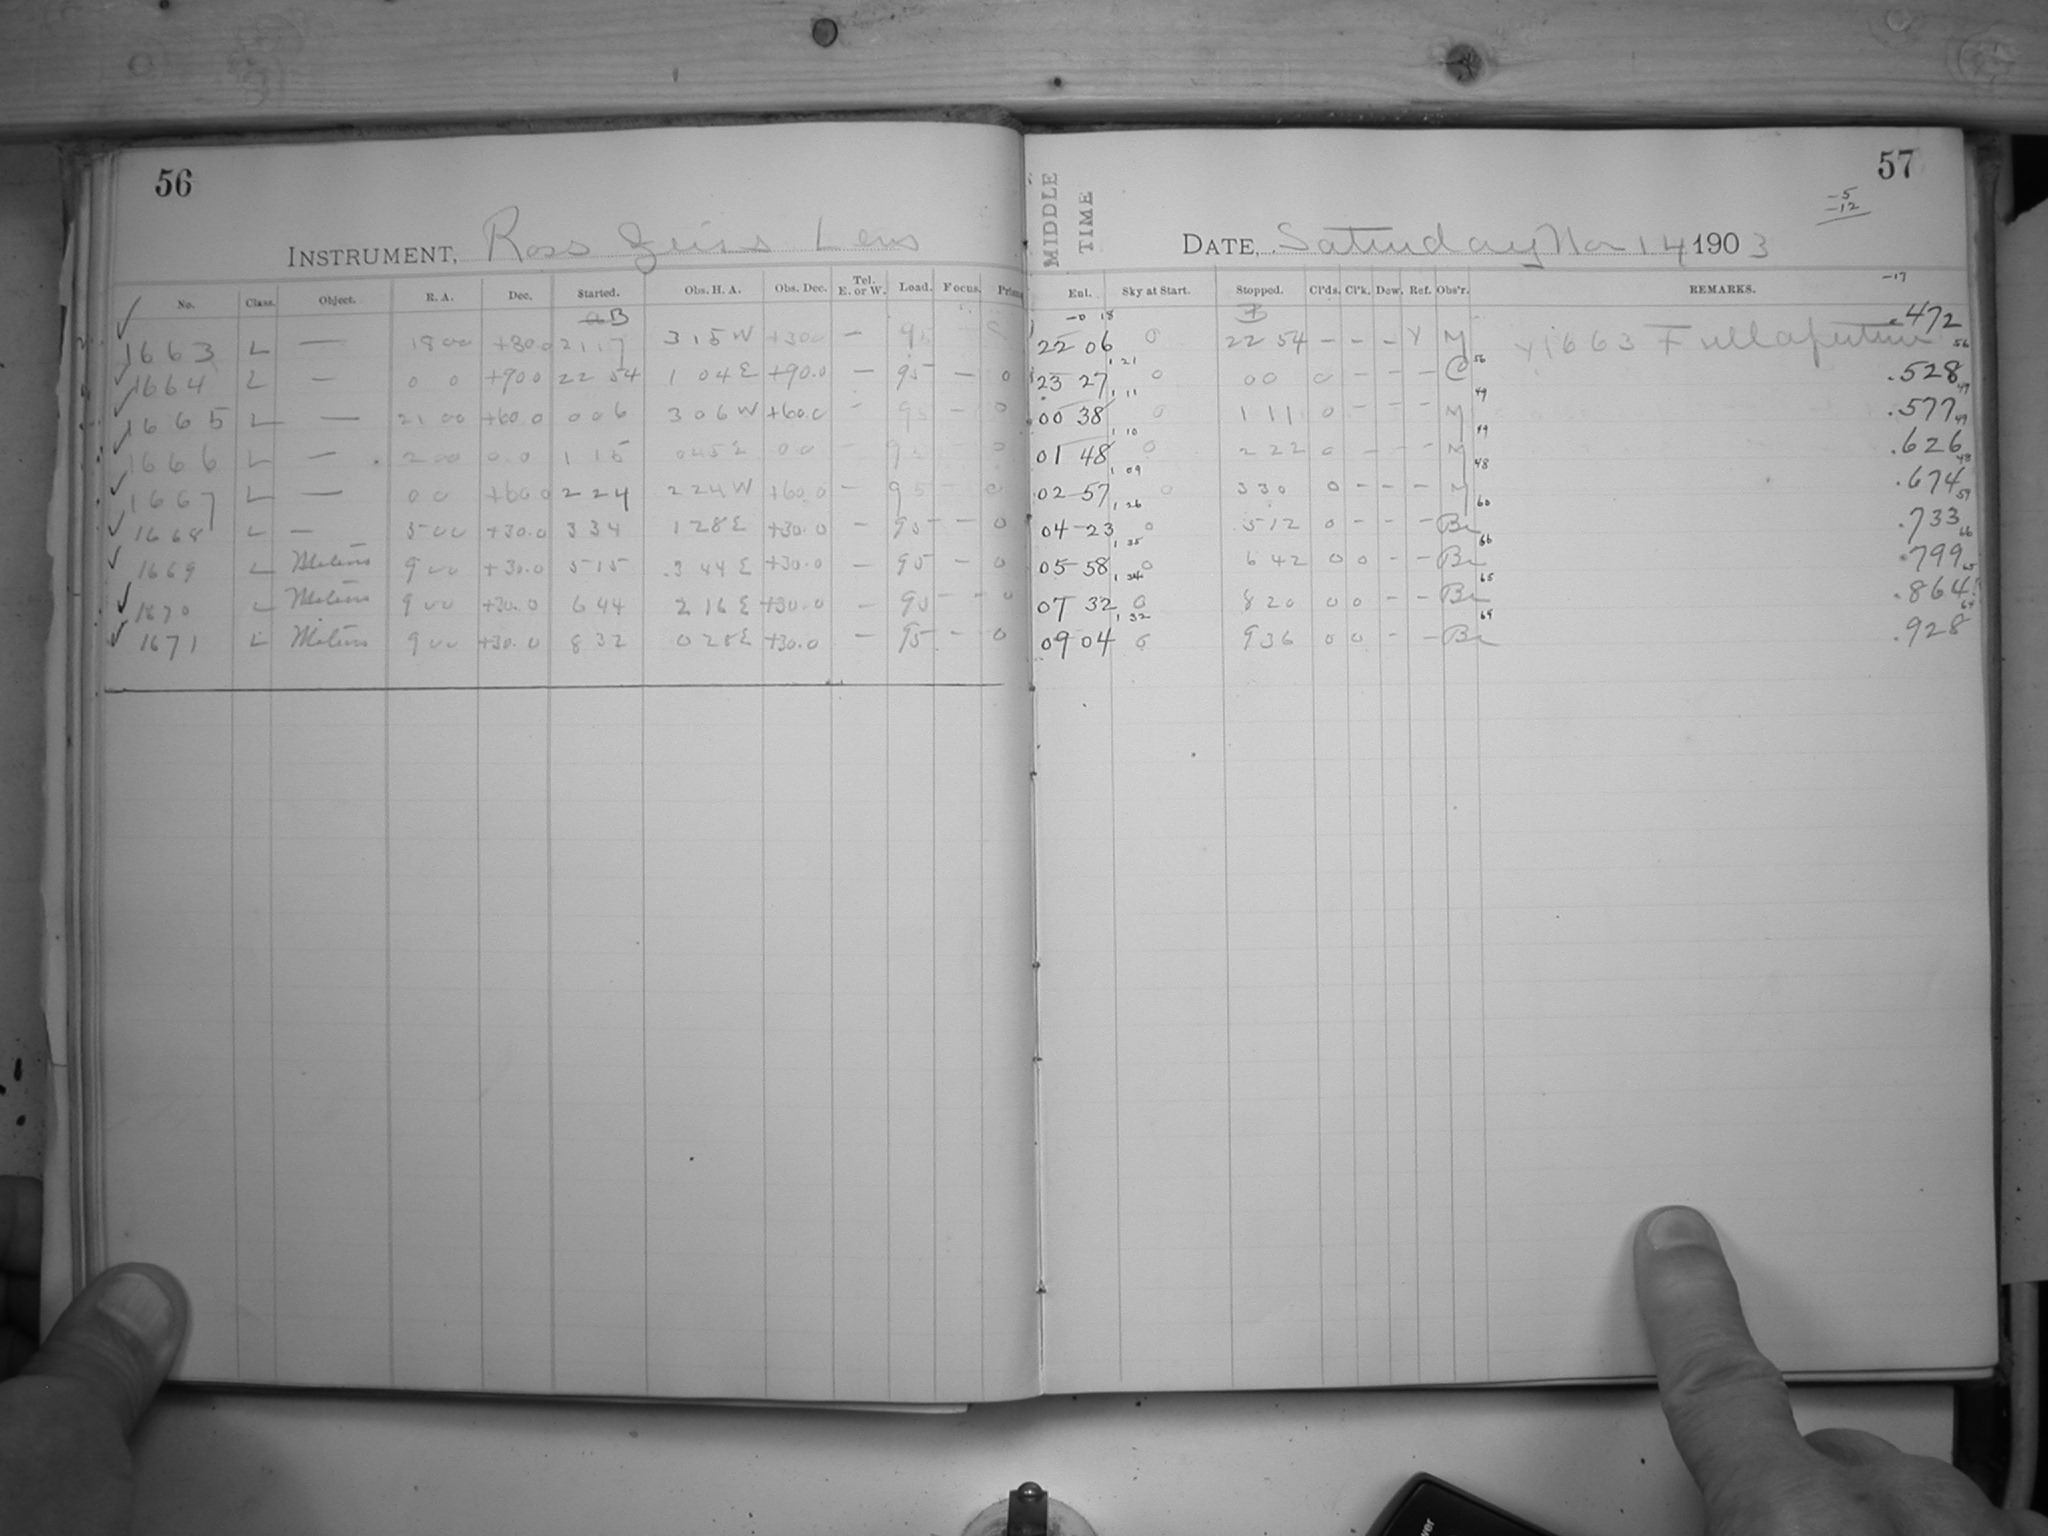 56
INSTRUMENT, Ross Zeiss Lens
No. Class. Object. R. A. Dec. Started. Obs. H. A. Obs. Dec. Tel. E. or W. Load. Focus. Prism
B
1663 L — 18 00 +30.0 21 17 3 15 W +30.0 — 95 —
1664 L — 0 0 +90.0 22 54 1 04 E +90.0 — 95 — 0
1665 L — 21 00 +60.0 0 06 3 06 W +60.0 — 95 — 0
1666 L — 2 00 0.0 1 15 0 45 E 0 0 — 95 — 0
1667 L — 0 0 +60.0 2 24 2 24 W +60.0 — 95 — 0
1668 L — 5 00 +30.0 3 34 1 28 E +30.0 — 95 — 0
1669 L Meteors 9 00 +30.0 5 15 3 44 E +30.0 — 95 — 0
1670 L Meteors 9 00 +30.0 6 44 2 16 E +30.0 — 95 — 0
1671 L Meteors 9 00 +30.0 8 32 0 28 E +30.0 — 95 — 0
57
MIDDLE TIME
-5
-12
-17
DATE, Saturday Nov 14 1903
Enl. Sky at Start. Stopped. Cl'ds. Cl'k. Dew. Ref. Obs'r. REMARKS.
-0 18
22 06 0 22 54 — — — Y M Y 1663 Full aperture .472 56
1,21
23 27 0 0 0 0 — — — C 56 .528 49
1,11
00 38 0 1 11 0 — — — M 49 .577 49
1,10
01 48 0 2 22 0 — — — M 49 .626 48
1,09
02 57 0 3 30 0 — — — M 48 .674 59
1,26
04 23 0 5 12 0 — — — Br 60 .733 66
1,35
05 58 0 6 42 0 0 — — Br 66 .799 65
1,34
07 32 0 8 20 0 0 — — Br 65 .864 64
1,32
09 04 0 9 36 0 0 — — Br 64 .928